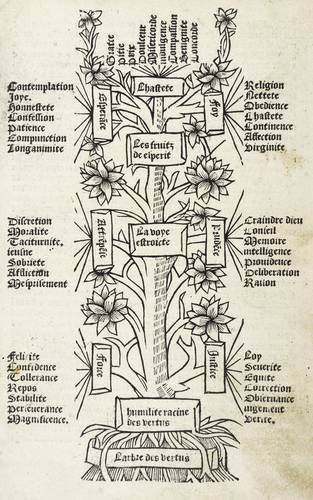 Grace
Pite
Paix
Doulceur
Misericorde
indulgence
Compassion
Benignite
Concorde
Chastete
Esperāce
Foy
Contemplation
Joye.
Honnestete
Confession
Patience
Compunction
Longanimite
Religion
Nettete
Obedience
Chastete
Continence
Affection
Virginite
Les fruitz
de esperit
Discretion
Moralite
Taciturnite.
ieusne
Sobriete
Affliction
Mesprisement
Attrēpāce
La voye
estroicte
Prudēce
Craindre dieu
Conseil
Memoire
intelligence
Providence
Deliberation
Raison
Felicite
Confidence
Tollerance
Repos
Stabilite
Perseverance
Magnificence.
Force
Justice
Loy
Severite
Equite
Correction
Observance
iugement
Verite.
humilite racine
des vertus
Larbre des vertus